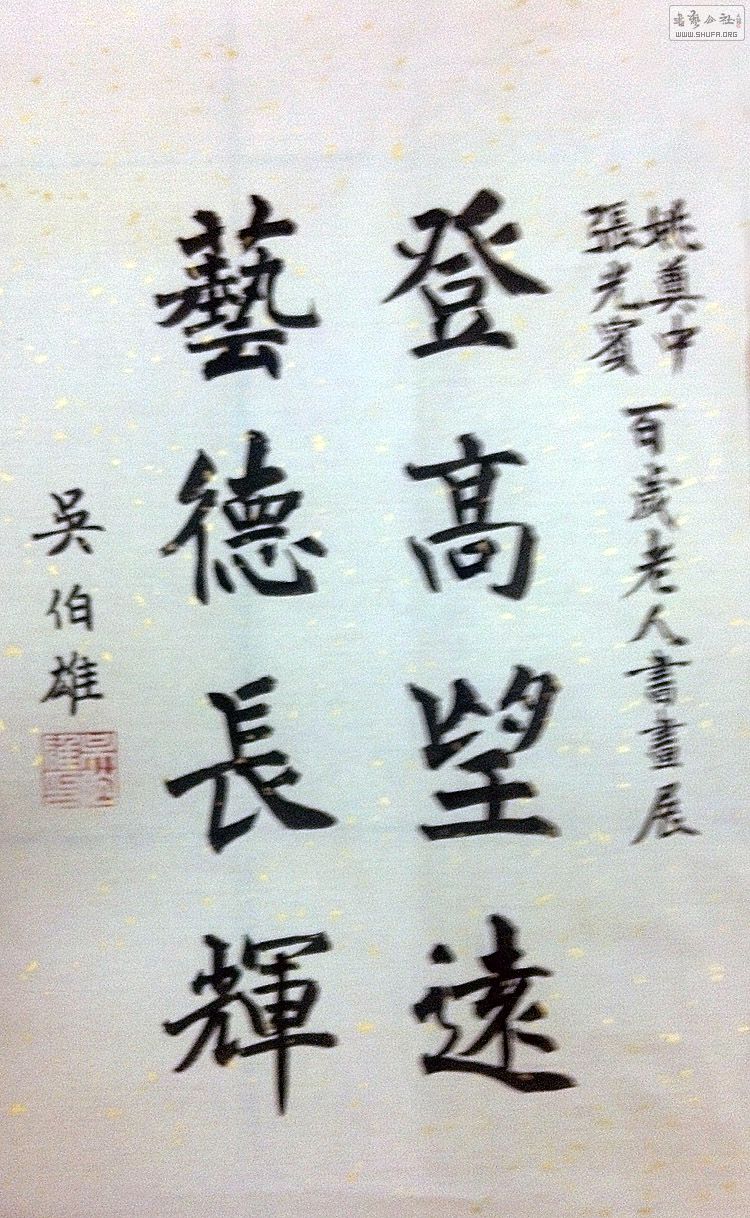 姚奠中
張光賓
百歲老人書畫展
登高望遠
藝德長輝
吳伯雄
書藝公社
WWW.SHUFA.ORG